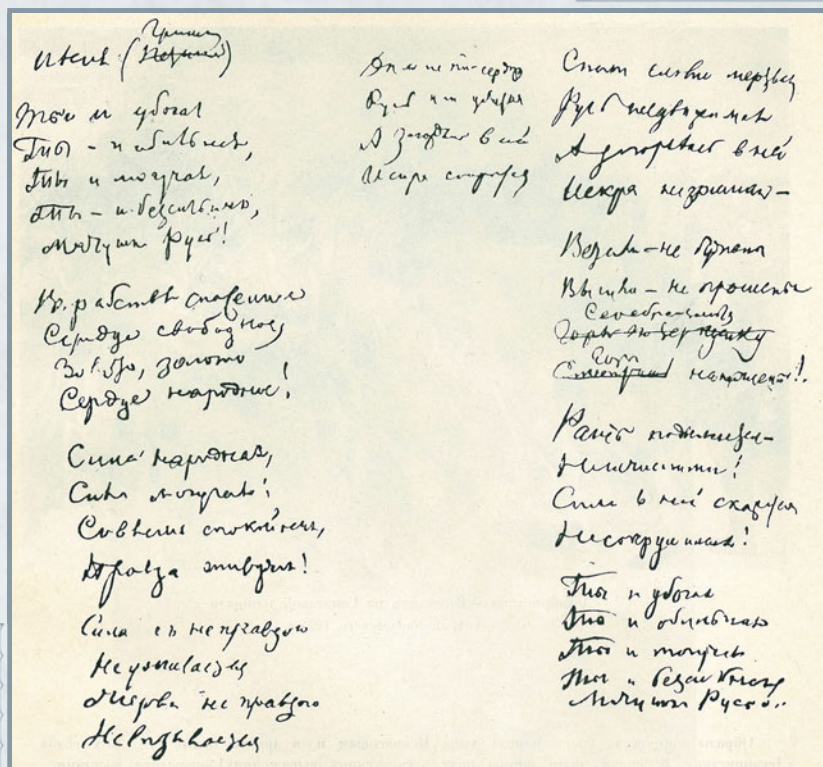 Ты и убогая
Ты - и обильная,
Ты и могучая,
Ты - и безсильная,
Матушка Русь!
Въ рабствѣ спасенное
Сердце свободное
Золото, золото
Сердце народное!
Сила народная,
Сила могучая!
Совѣсть спокойная,
Правда живучая!
Сила съ неправдою
Не уживается
Жертва неправдою
Не вызывается
Русь
А в ней
Искра сокрытая
Спит словно мертвая
Русь недвижимая
А загорѣлась в ней
Искра незримая —
Встали - не бужены
Вышли - не прошены
Горы наношены!.
Рать подымается-
Неисчислимая!
Сила в ней скажется
Несокрушимая!
Ты и убогая
Ты и обильная
Ты и могучая
Ты и безсильная
Матушка Русь!..